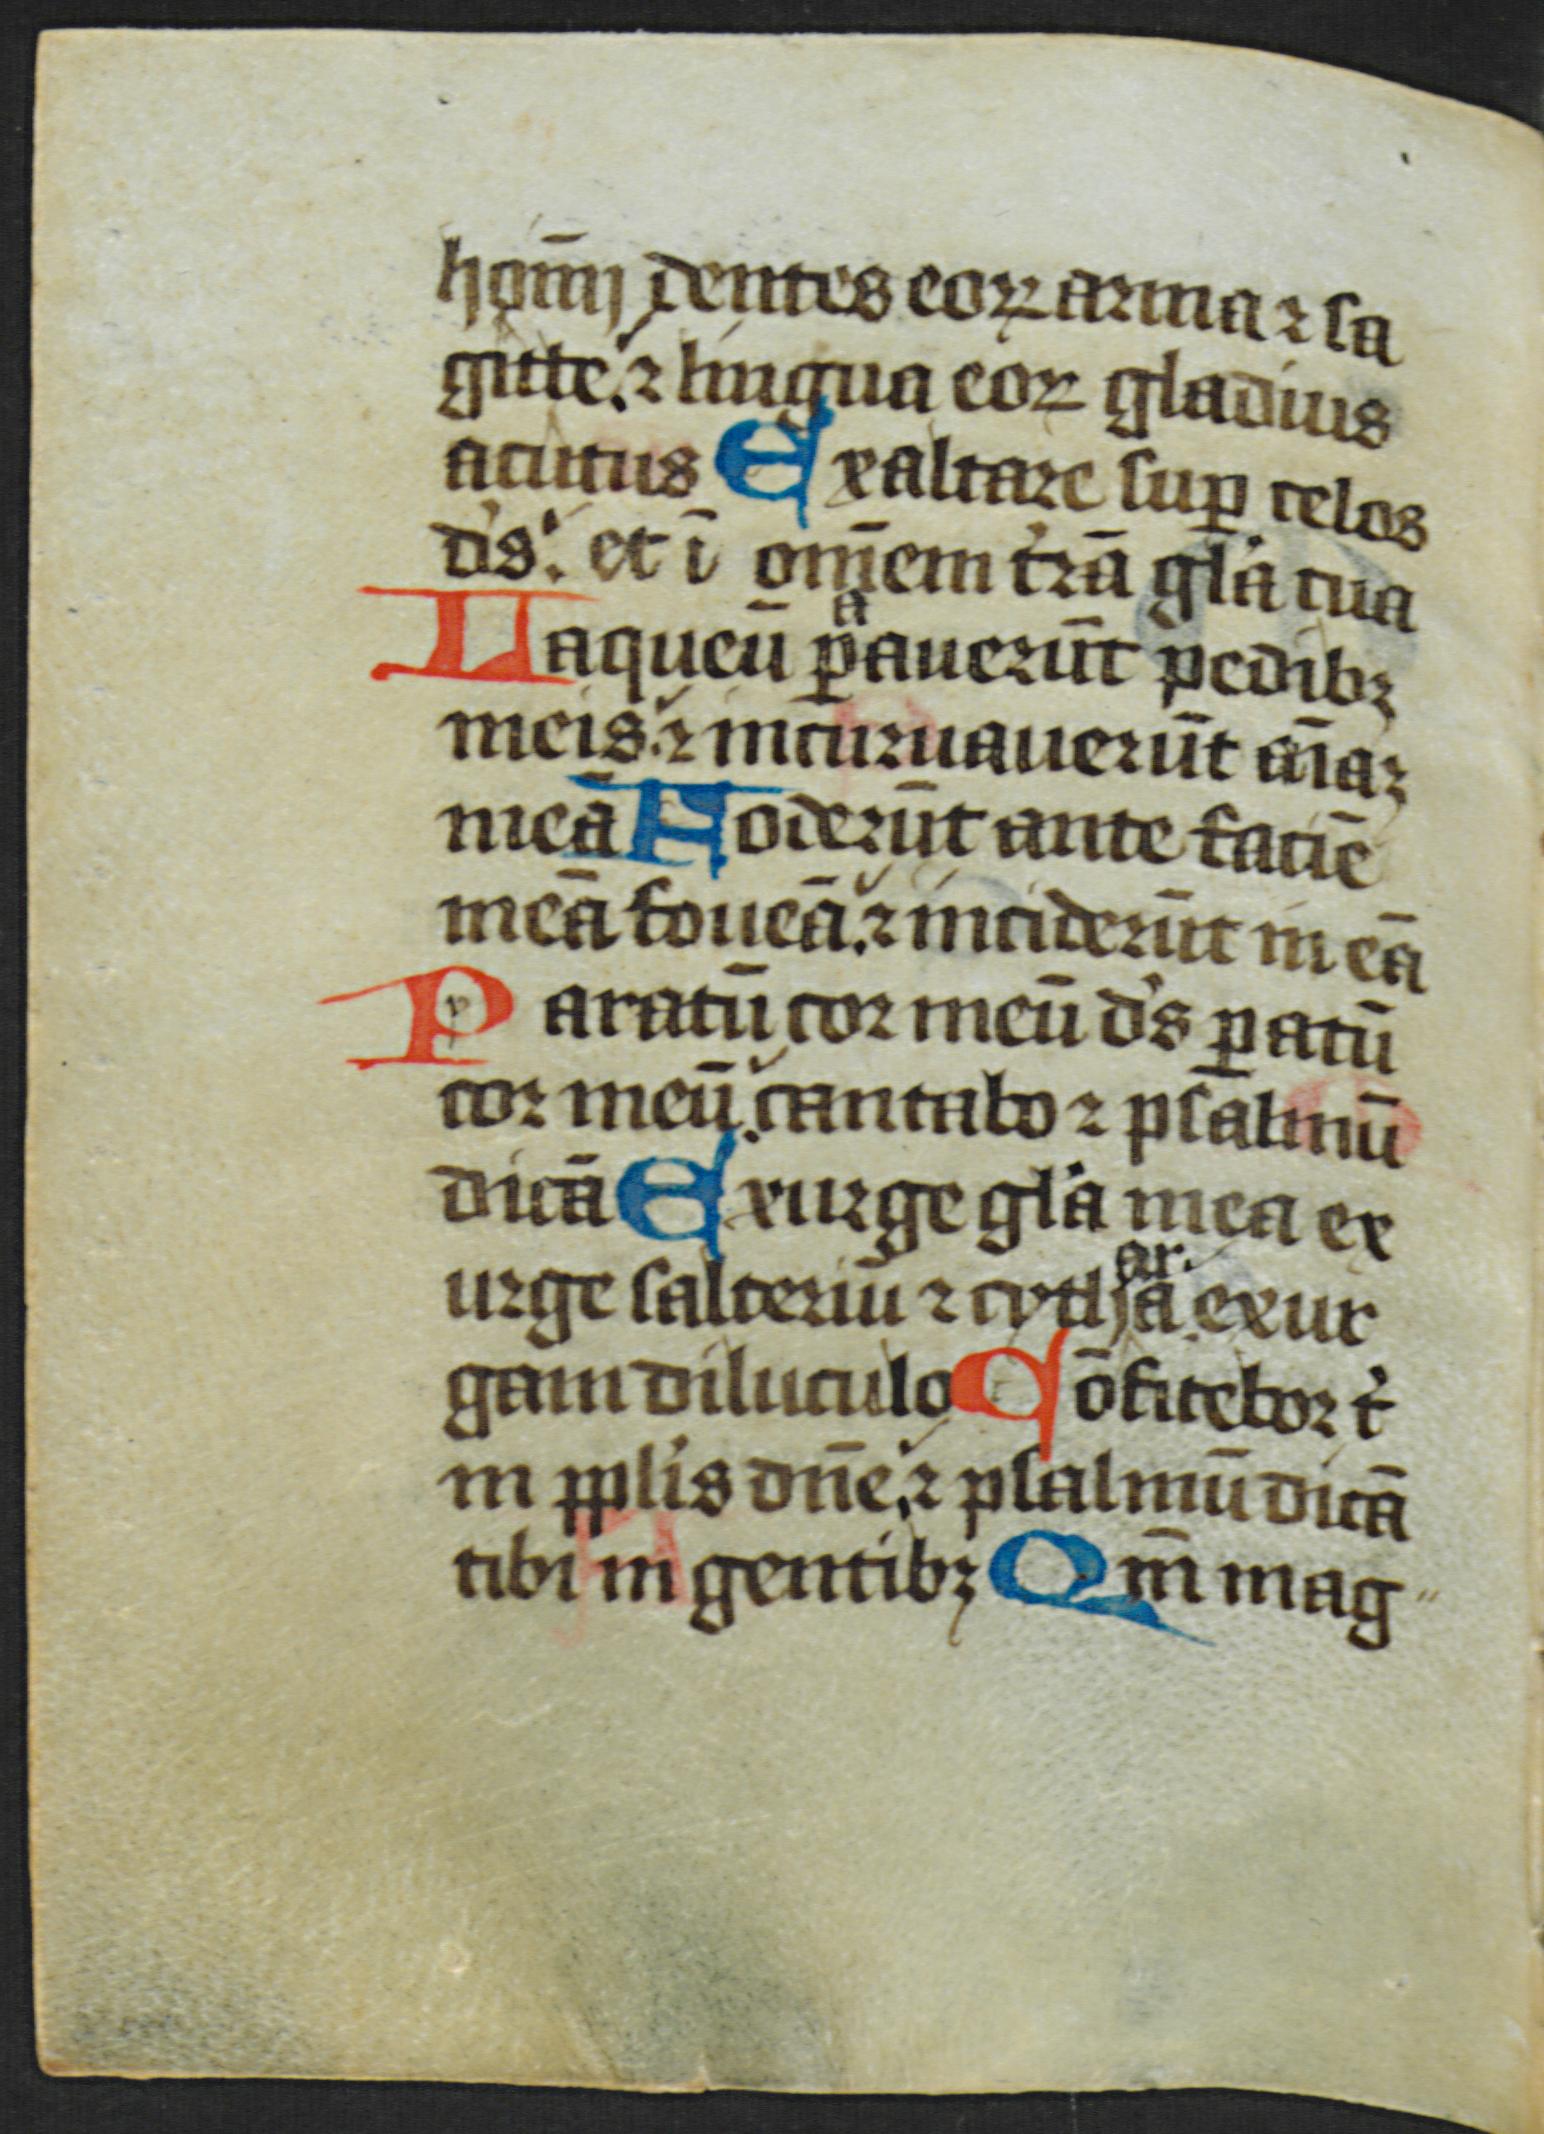 hoı̄ı̄j dentes eoꝝ arma ⁊ sa
gitte ⁊ lingua eoꝝ gladius
acutus Exaltare suꝑ celos
d's et ī om̄em t'rā gl'a tua
Laqueū ꝑaauerūt pedibꝫ
meis ⁊ incuruauerūt āīaꝫ
meā Foderūt ante faciē
meā foueā ⁊ inciderūt in eā
Paratū cor meū d's ꝑatū
cor meū cantabo ⁊ psalmū
dicā Exurge gl'a mea ex
urge salteriū ⁊ cythara exur
gam diluculo Cōfitebor t'
in ppl'is dn̄e ⁊ psalmū dicā
tibi in gentibꝫ Qm̄ mag"